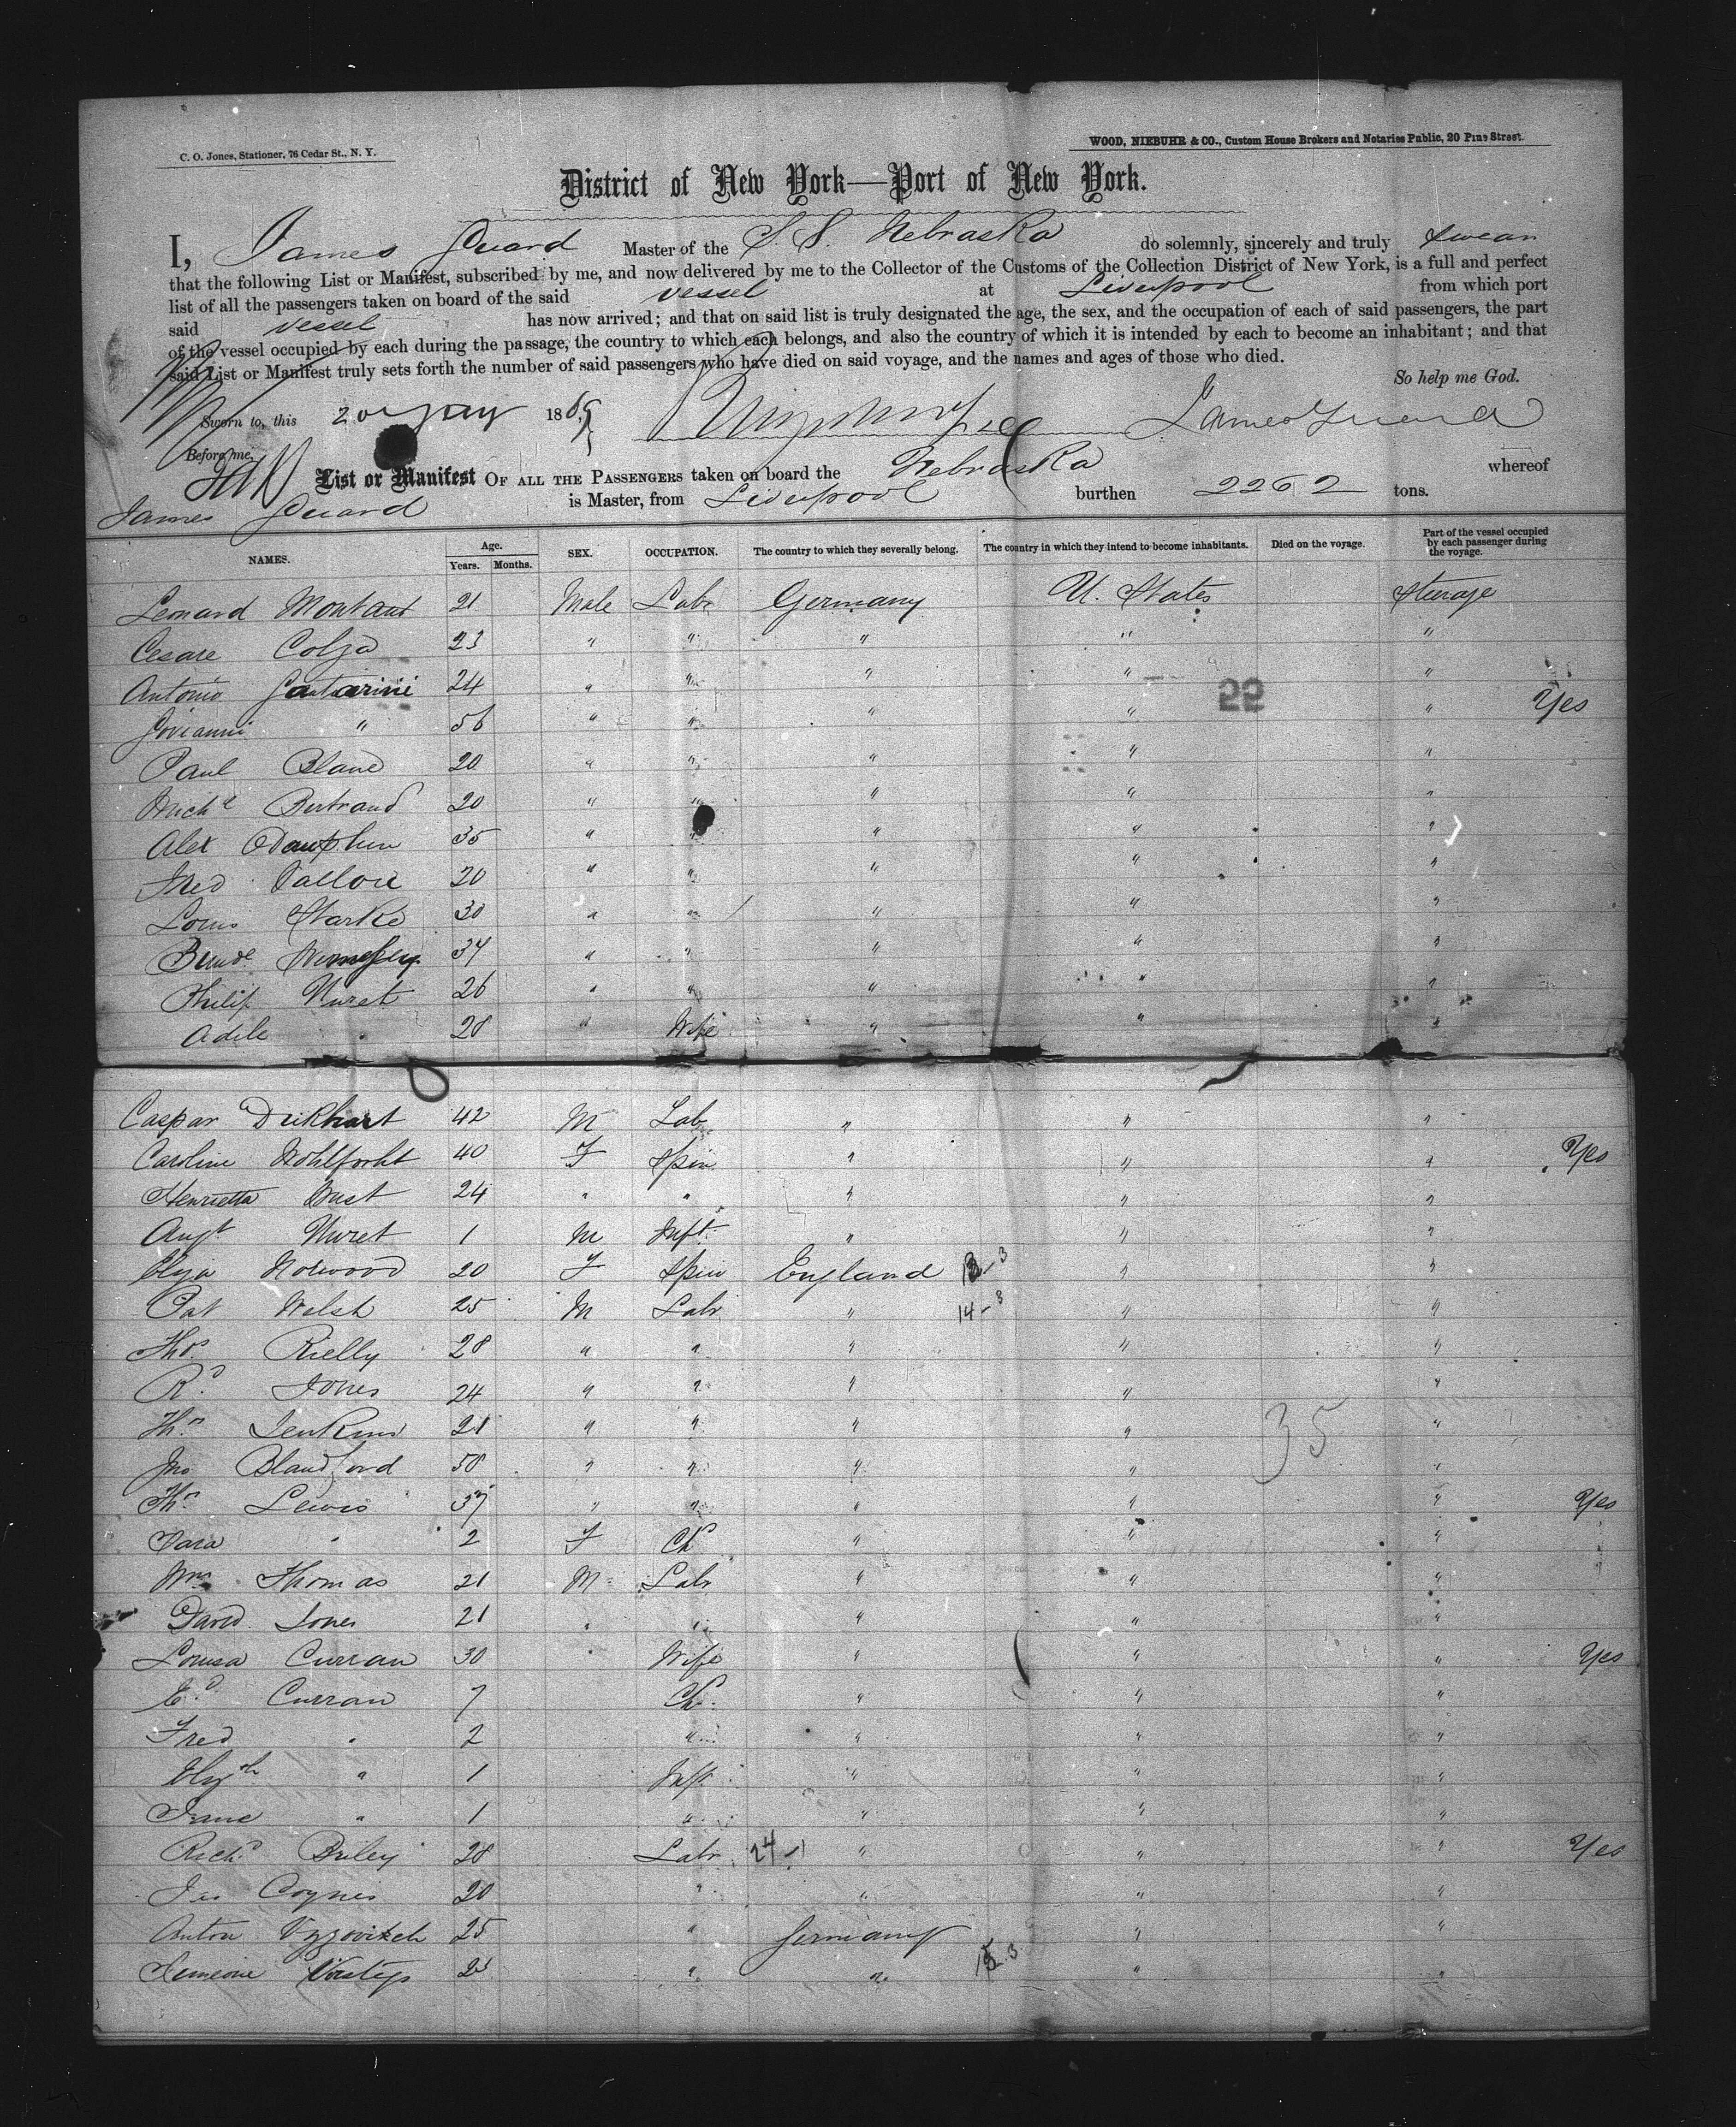 C. O. Jones, Stationer, 76 Cedar St., N. Y.
WOOD, NIEBUHR & CO., Custom House Brokers and Notaries Public, 20 Pine Street.
District of New York—Port of New York.
I, James Guard Master of the S. S. Nebraska do solemnly, sincerely and truly swear
that the following List or Manifest, subscribed by me, and now delivered by me to the Collector of the Customs of the Collection District of New York, is a full and perfect
list of all the passengers taken on board of the said vessel at Liverpool from which port
said vessel has now arrived; and that on said list is truly designated the age, the sex, and the occupation of each of said passengers, the part
of the vessel occupied by each during the passage, the country to which each belongs, and also the country of which it is intended by each to become an inhabitant; and that
said List or Manifest truly sets forth the number of said passengers who have died on said voyage, and the names and ages of those who died.
So help me God.
Sworn to, this 20 1869 James Guard
Before me,
List or Manifest OF ALL THE PASSENGERS taken on board the Nebraska whereof
James Guard is Master, from Liverpool burthen 2262 tons.
NAMES. Age. Years. Months. SEX. OCCUPATION. The country to which they severally belong. The country in which they intend to become inhabitants. Died on the voyage. Part of the vessel occupied by each passenger during the voyage.
Leonard Montant 21 Male Labr Germany U. States Steerage
Cesare 23 " " " " "
Antonio 24 " " " " "
Giovanni " 56 " " " " " Yes
55
Paul Blanc 20 " " " " "
Michl Bertrand 20 " " " " "
Alex Dauphin 35 " " " " "
20 " " " " "
Louis Starke 30 " " " " "
34 " " " " "
Philip Nuret 26 " " " " "
Adele " 28 " Wife " " "
Caspar Dickhart 42 M Lab " " "
Caroline 40 F Spin " " " Yes
Henrietta 24 " " " " "
Augt Nuret 1 M Inft " " "
Eliza Norwood 20 F Spin England 13-3 " "
Pat Welsh 25 M Labr " 14-3 " "
Thos Rielly 28 " " " " "
Rd Jones 24 " " " " "
Thos Jenkins 21 " " " " "
35
Jno Blandford 50 " " " " "
Thos Lewis 37 " " " " " Yes
Sara " 2 F Ch " " "
Wm Thomas 21 M Labr " " "
David Jones 21 " " " " "
Louisa Curran 30 Wife " " " Yes
Ed Curran 7 Ch " " "
Fred " 2 " " " "
Elizth " 1 Inft " " "
Jane " 1 " " " "
Richd Briley 28 Labr 24-1 " " " Yes
Jas Coynes 20 " " " "
Anton 25 " Germany " "
25 " " 15.3 " "